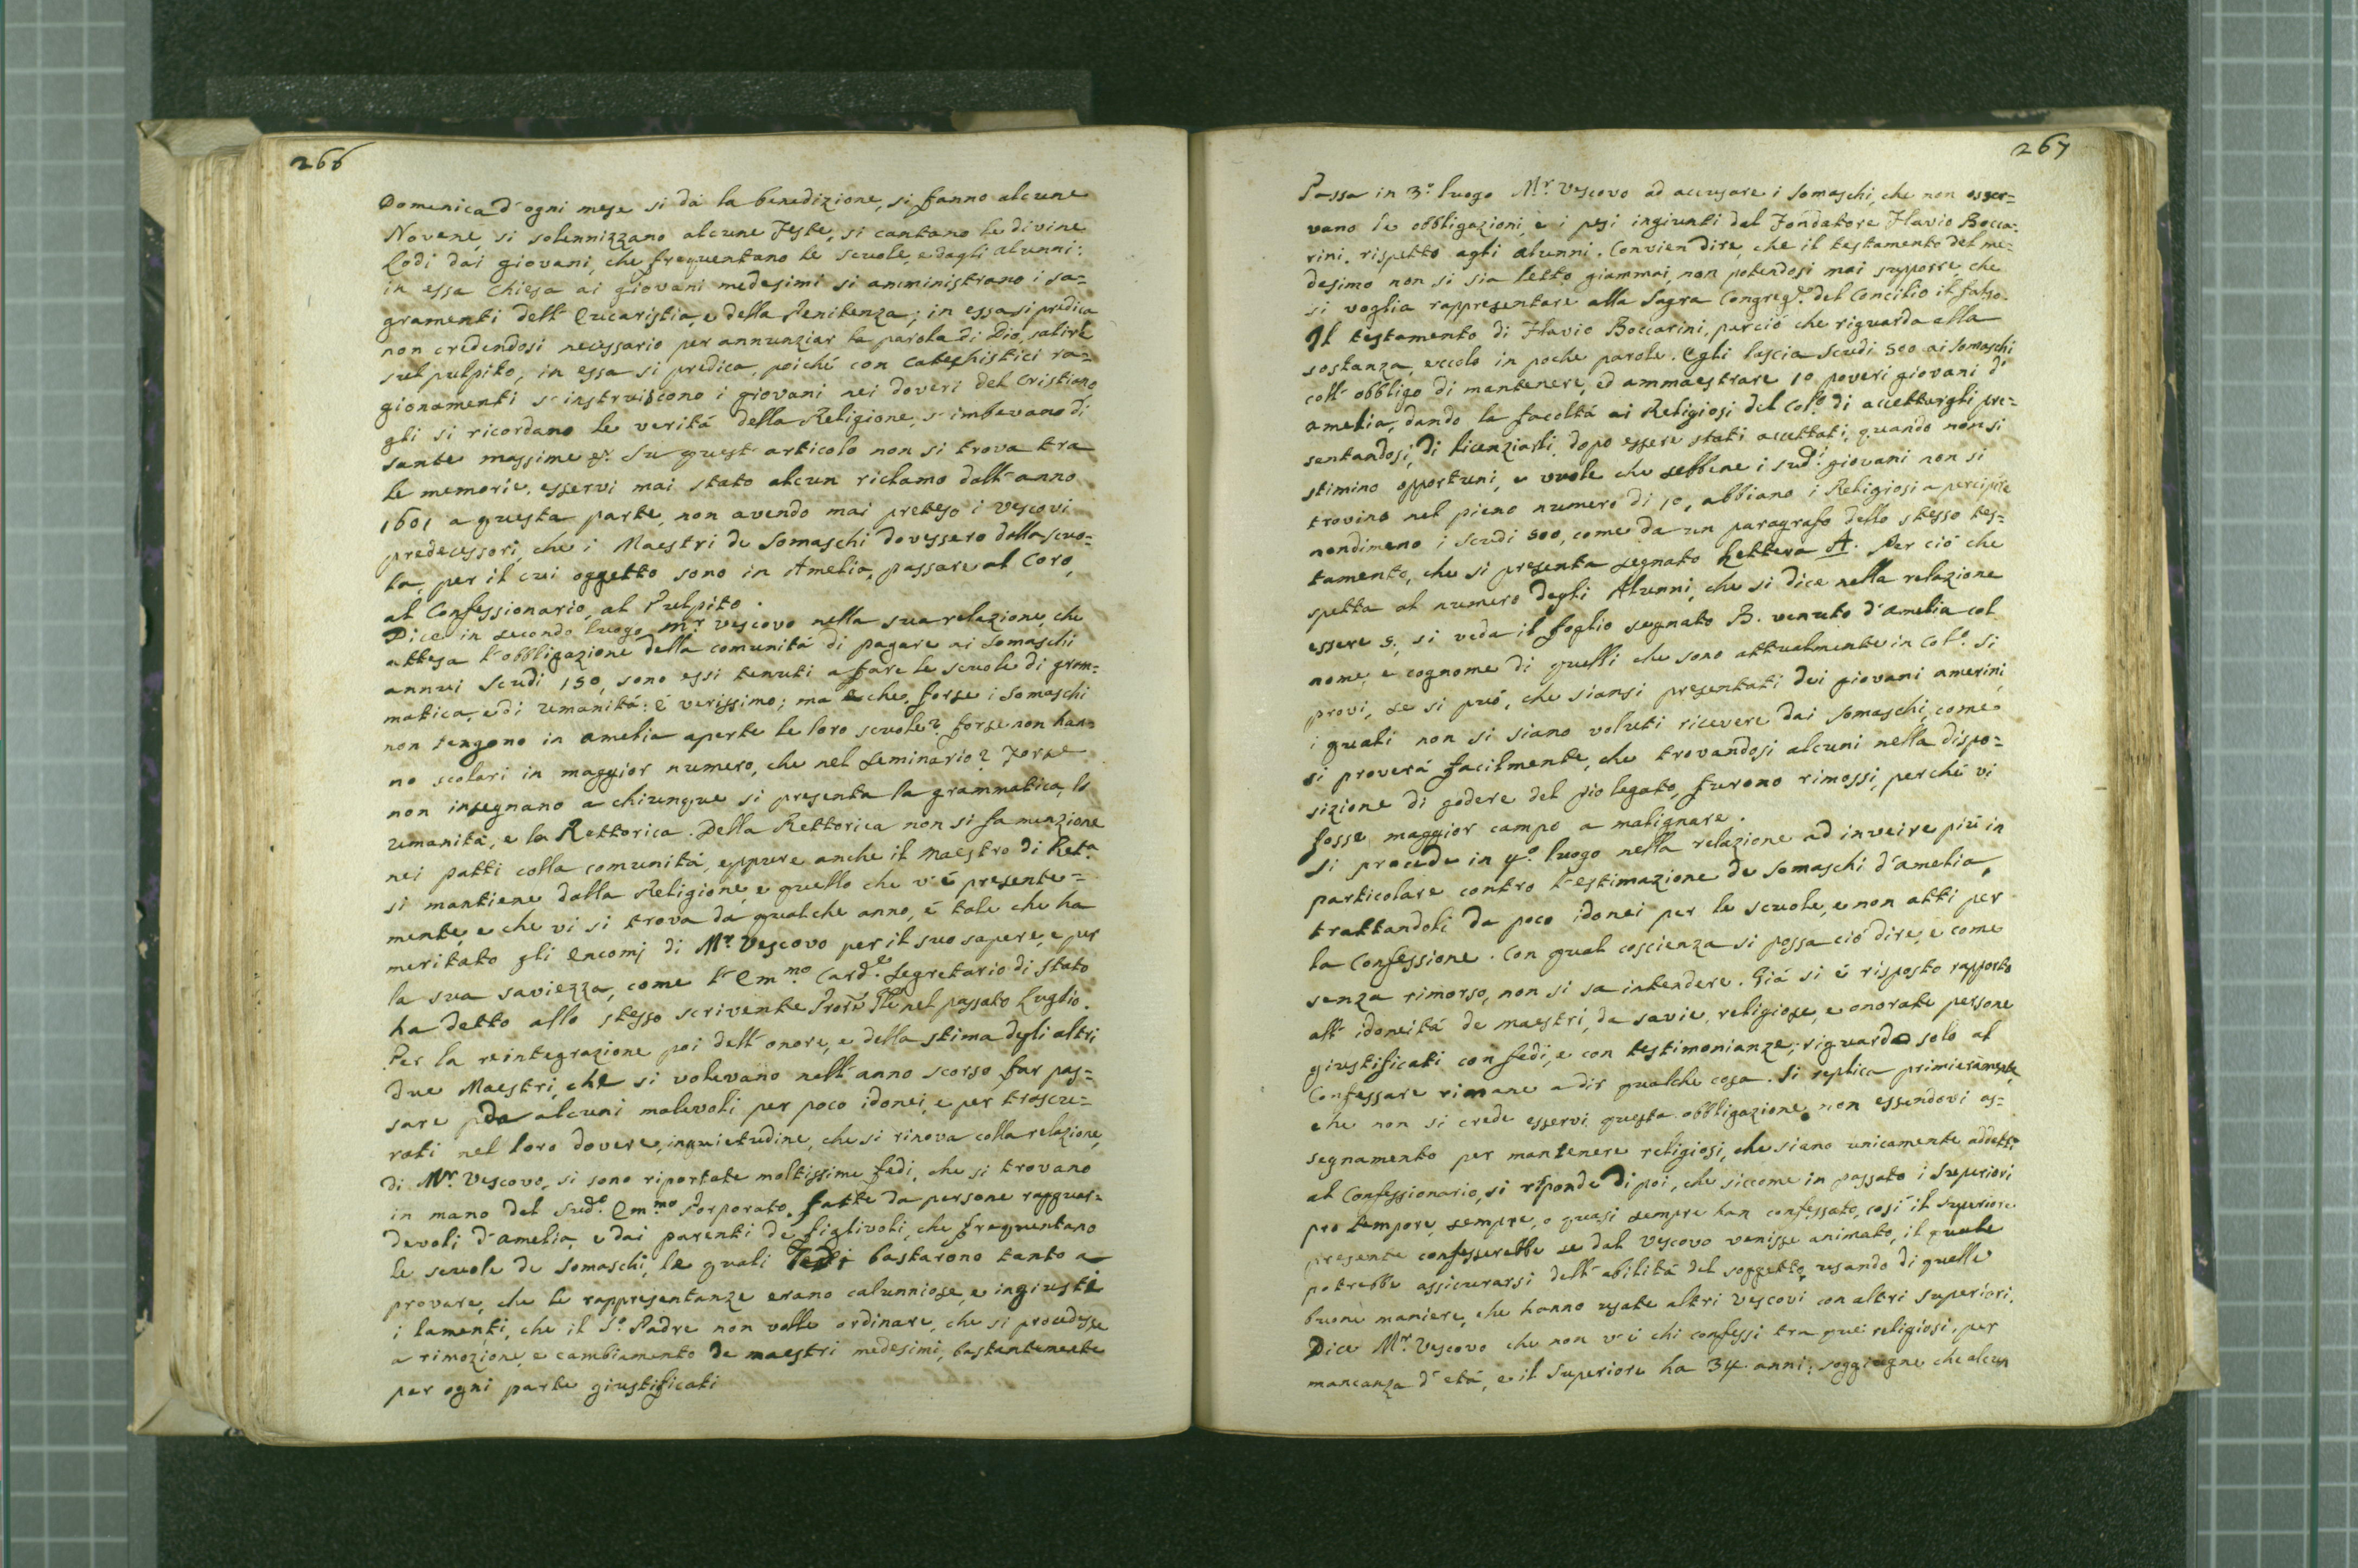 266
Domenica d'ogni mese si dà la benedizione, si fanno alcune
Novene, si solennizzano alcune Feste, si cantano le divine
Lodi dai giovani, che frequentano le scuole, e dagli alunni:
in essa Chiesa ai giovani medesimi si amministrano i sa=
gramenti dell'Eucaristia, e della Penitenza; in essa si predica
non credendosi necessario per annunziar la parola di Dio, salire
sul pulpito, in essa si predica, poiché con Catechistici ra=
gionamenti s'instruiscono i giovani nei doveri del Cristiano,
gli si ricordano le verità della Religione, s'imbevano di
sante massime &c. Su quest'articolo non si trova tra
le memorie, esservi mai stato alcun richiamo dall'anno
1601 a questa parte, non avendo mai preteso i Vescovi
predecessori, che i Maestri de Somaschi dovessero dalla scuo=
la, per il cui oggetto sono in Amelia, passare al Coro,
al Confessionario, al Pulpito.
Dice in secondo luogo Mr. Vescovo nella sua relazione, che
attesa l'obbligazione della comunità di pagare ai Somaschi
annui Scudi 150, sono essi tenuti a fare le scuole di gram=
matica, e di Umanità: è verissimo; ma che, forse i Somaschi
non tengono in Amelia aperte le loro scuole? forse non han=
no scolari in maggior numero, che nel Seminario? Forse
non insegnano a chiunque si presenta la grammatica, la
Umanità, e la Rettorica. Della Rettorica non si fa menzione
nei patti colla comunità, eppure anche il Maestro di Reta.
si mantiene dalla Religione, e quello che v'è presente=
mente, e che vi si trova da qualche anno, è tale che ha
meritato gli Encomj di Mr. Vescovo per il suo sapere, e per
la sua saviezza, come l'Emmo. Carde. Segretario di Stato
ha detto allo stesso scrivente nel passato Luglio.
Per la reintegrazione poi dell'onore, e della stima degli altri
due Maestri, che si volevano nell'anno scorso far pas=
sare da alcuni malevoli per poco idonei, e per trascu=
rati nel loro dovere, inquietudine, che si rinova colla relazione,
di Mr. Vescovo, si sono riportate moltissime fedi, che si trovano
in mano del Sudo. Emmo. Porporato, fatte da persone ragguar=
devoli d'Amelia, e dai parenti de figlivoli, che frequentano
le scuole de Somaschi, le quali Fedi bastarono tanto a
provare, che le rappresentanze erano calunniose, e ingiusti
i lamenti, che il So. Padre non volle ordinare, che si procedesse
a rimozione, e cambiamento de maestri medesimi, bastantemente
per ogni parte giustificati
267
Passa in 3o. luogo Mr. Vescovo ad accusare i Somaschi, che non osser=
vano le obbligazioni, e i pesi ingiunti dal Fondatore Flavio Bocca=
rini, rispetto agli alunni. Convien dire, che il testamento del me=
desimo non si sia letto giammai, non potendosi mai supporre, che
si voglia rappresentare alla Sagra Congrege. del Concilio il falso.
Il testamento di Flavio Boccarini, perciò che riguarda alla
sostanza, eccolo in poche parole. Egli lascia Scudi 500 ai Somaschi
coll'obbligo di mantenere, ed ammaestrare 10 poveri giovani d'
amelia, dando la facoltà ai Religiosi del Colo. di accettargli pre=
sentandosi, di licenziarli, dopo essere stati accettati, quando non si
stimino opportuni, e vuole che sebbene i sudi. giovani non si
trovino nel pieno numero di 10, abbiano i Religiosi a percipire
nondimeno i Scudi 500, come da un paragrafo dello stesso tes=
tamento, che si presenta segnato Lettera A. Per ciò che
spetta al numero degli Alunni, che si dice nella relazione
essere 5, si veda il foglio segnato B. venuto d'Amelia col
nome, e cognome di quelli che sono attualmente in Colo. Si
provi, se si può, che siansi presentati dei giovani amerini,
i quali non si siano voluti ricevere dai Somaschi, come
si proverà facilmente, che trovandosi alcuni nella dispo=
sizione di godere del pio legato, furono rimossi, perché vi
fosse maggior campo a malignare.
Si procede in 4o. luogo nella relazione ad inveire più in
particolare contro l'estimazione de Somaschi d'Amelia,
trattandoli da poco idonei per le scuole, e non atti per
la Confessione. Con qual coscienza si possa ciò dire, e come
senza rimorso, non si sa intendere. Già si è risposto rapporto
all'idoneità de maestri, da savie, religiose, e onorate persone
giustificati con fedi, e con testimonianze; riguardo solo al
Confessare rimane a dir qualche cosa. Si replica primieramente,
che non si crede esservi questa obbligazione, non essendovi as=
segnamento per mantenere religiosi, che siano unicamente addetti
al Confessionario, si risponde di poi, che siccome in passato i Superiori
pro tempore, sempre, o quasi sempre han confessato, così il Superiore
presente confesserebbe se dal Vescovo venisse animato, il quale
potrebbe assicurarsi dell'abilità del soggetto, usando di quelle
buone maniere, che hanno usate altri Vescovi con altri Superiori.
Dice Mr. Vescovo che non v'è chi confessi tra quei religiosi, per
mancanza d'età, e il Superiore ha 34 anni; soggiugne che alcun